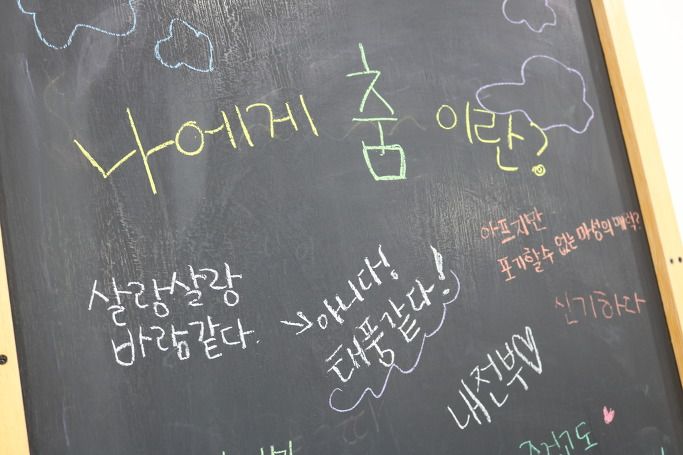 나에게 춤 이란?
아프지만
포기할수 없는 마성의 매력?
신기하다
살랑살랑
바람같다.
→아니다!
태풍같다!
내전부♡